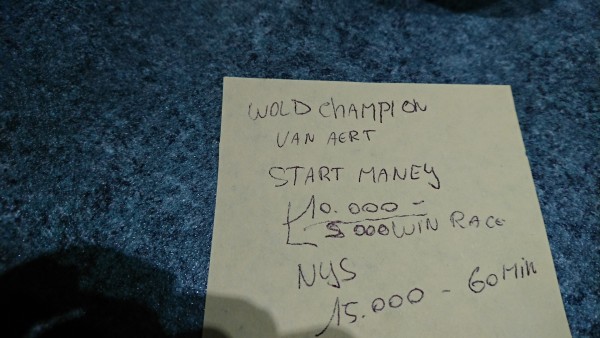 WOLD CHAMPION
VAN AERT
START MANEY
10.000 -
5000 WIN RACE
NYS
15.000 - 60 Min